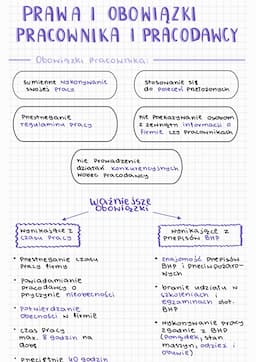 PRAWA I OBOWIĄZKI
PRACOWNIKA I PRACODAWCY
Obowiązki pracownika:
sumienne wykonywanie
swojej pracy
stosowanie się
do poleceń przełożonych
Przestrzeganie
regulaminu pracy
nie przekazywanie osobom
z zewnątrz informacji o
firmie czy pracownikach
nie prowadzenie
działań konkurencyjnych
wobec pracodawcy
ważniejsze
obowiązki
wynikające z
czasu pracy
wynikające z
przepisów BHP
• Przestrzeganie czasu
pracy firmy
• Powiadamianie
pracodawcy o
przyczynie nieobecności
• Potwierdzanie
obecności w firmie
• czas pracy
max. 8 godzin na
dobę
• przeciętnie 40 godzin
• znajomość przepisów
BHP i przeciwpożaro-
wych
• branie udziału w
szkoleniach i
egzaminach dot.
BHP
• wykonywanie pracy
zgodnie z BHP
(porządek, stan
maszyn, odzież i
obuwie)